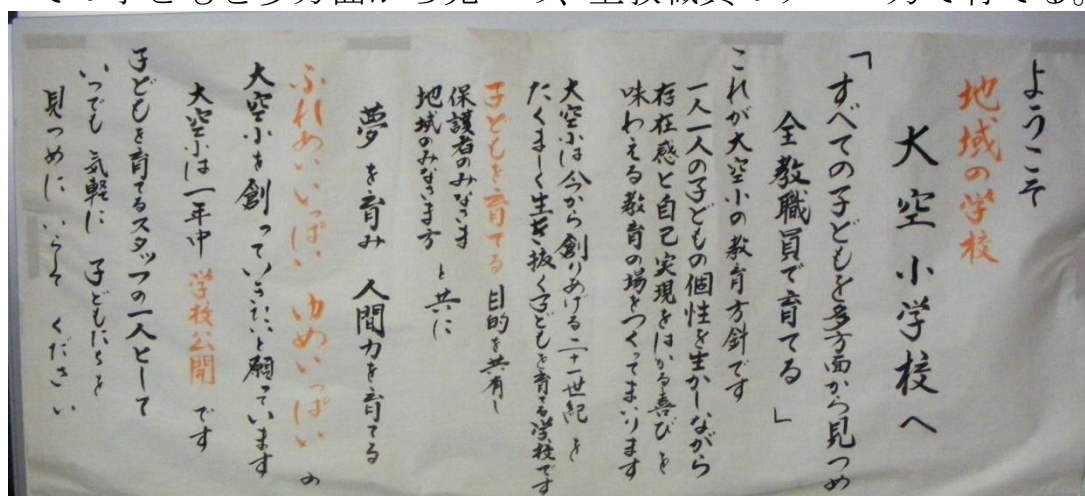 ようこそ
地域の学校
大空小学校へ
「すべての子どもを多方面から見つめ
全教職員で育てる」
これが大空小の教育方針です
一人一人の子どもの個性を生かしながら
存在感と自己実現をはかる喜びを
味わえる教育の場をつくってまいります
大空小は今から創りあげる二十一世紀を
たくましく生き抜く子どもを育てる学校です
子どもを育てる 目的を共有し
保護者のみなさま
地域のみなさま方 と共に
夢を育み 人間力を育てる
ふれあいいっぱい ゆめいっぱい の
大空小を創っていきたいと願っています
大空小は一年中 学校公開 です
子どもを育てるスタッフの一人として
いつでも 気軽に 子どもたちを
見つめに いらして ください